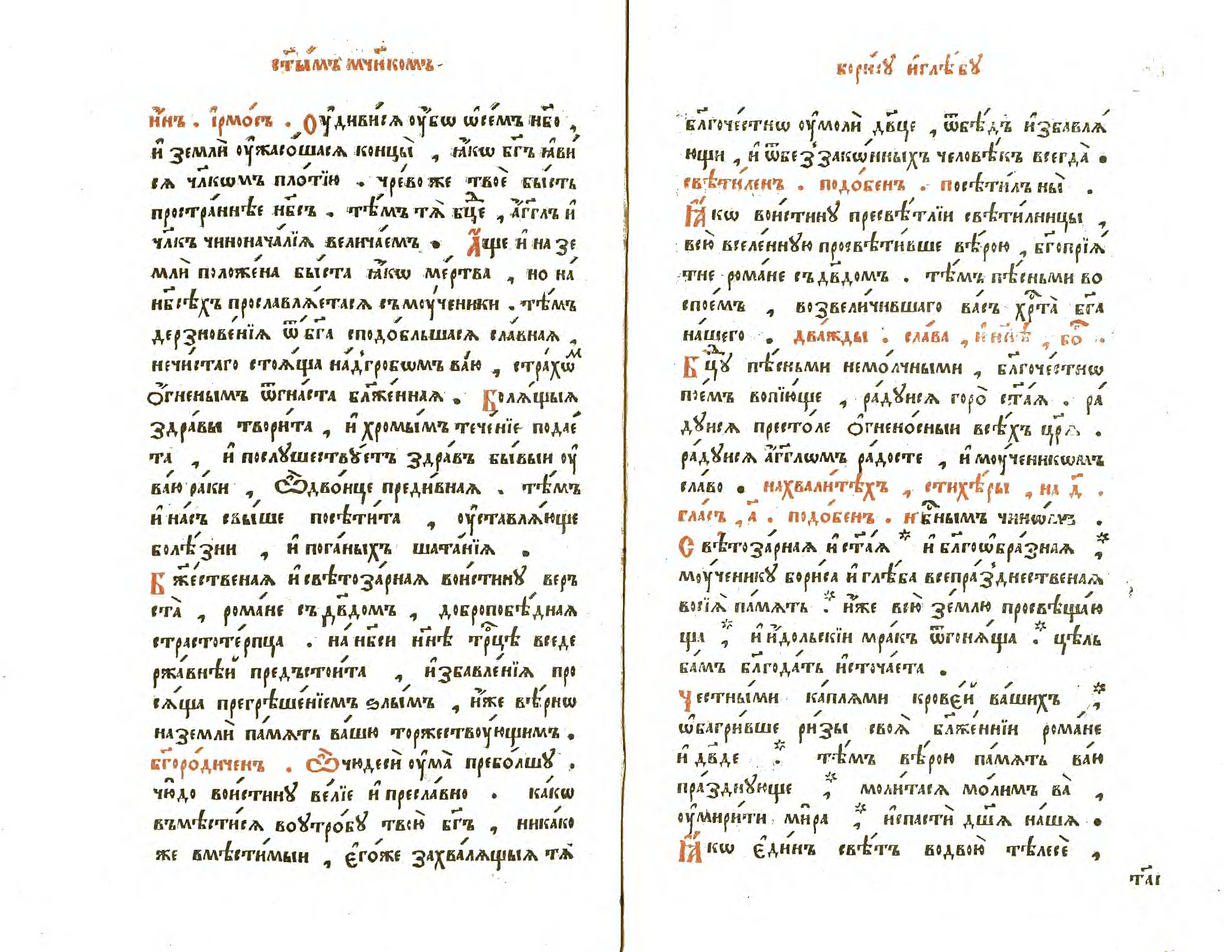 ст҃ы́мъ мч҃нкомъ
н҃нъ . і҆рмо́съ . Оу҆дивисѧ оу҆́бѡ ѡ҆се́мъ нб҃о ,
и҆ землѝ оу҆жасо́шасѧ концы̀ , ꙗ҆́кѡ бг҃ъ ꙗ҆ви
сѧ чл҃кѡмъ пло́тїю . чре́во же твоѐ бы́сть
простра́ннѣе нб҃съ . тѣ́мъ тѧ̀ бц҃е , а҆́гг҃лъ и҆
чл҃къ чинонача́лїѧ велича́емъ . А҆́ще и҆ на зе
млѝ положе́на бы́ста ꙗ҆́кѡ ме́ртва , но на
нб҃сѣ́хъ прославлѧ́етасѧ съ мо́ученики . тѣ́мъ
дерзнове́нїѧ ѿ бг҃а сподо́бльшасѧ сла́внаѧ ,
нечи́стаго стоѧ́ща на́дгробѡмъ ва́ю , стра́хѡм
О҆́гненымъ ѿгна́ста бл҃же́ннаѧ . Болѧ́щыѧ
здра́вы твори́та , и҆ хромы́мъ тече́нїе подае́
та , и҆ послу́шествꙋетъ здра́въ бы́выи оу҆
ва́ю ра́ки , Ѽ дво́ице преди́внаѧ . тѣ́мъ
и҆ на́съ свы́ше посѣти́та , оу҆ставлѧ́юще
болѣ́зни , и҆ пога́ныхъ шата́нїѧ .
Бж҃ественаѧ и҆ свѣтоза́рнаѧ вои́стинꙋ веръ
ста̀ , рома́не съ дв҃домъ , добропобѣ́днаѧ
страстоте́рпца . на нб҃си н҃нѣ тр҃цѣ вседе
ржа́внѣй предъстои́та , и҆збавле́нїѧ про
сѧ́ща прегрѣше́нїемъ ѕлы́мъ , и҆́же вѣ́рнѡ
на землѝ па́мѧть ва́шю торжествоу́ющимъ .
бг҃оро́диченъ . Ѽ чюдесѝ оу҆ма̀ пребо́лшꙋ ,
чю́до вои́стинꙋ ве́лїе и҆ пресла́вно . ка́кѡ
въмѣсти́сѧ воутро́бꙋ твою̀ бг҃ъ , никако
же вмѣсти́мыи , є҆го́же захвалѧ́щыѧ тѧ̀
бори́сꙋ и҆ глѣ́бꙋ
бл҃гоче́стнѡ оу҆молѝ дв҃це , ѿ бѣ́дъ и҆збавлѧ́
ющи , и҆ ѿ без̾зако́нныхъ человѣ́къ всегда̀ .
свѣти́ленъ . подо́бенъ . посѣти́лъ ны̀ .
Ꙗ҆́кѡ вои́стинꙋ пресвѣ́тлїи свѣти́лницы ,
всю̀ вселе́ннꙋю просвѣти́вше вѣ́рою , бг҃опрїѧ́
тне рома́не съ дв҃домъ . тѣ́мъ пѣ́сньми во
спое́мъ , возвели́чившаго ва́съ хр҃та̀ бг҃а
на́шего . два́жды . сла́ва , и҆ н҃нѣ , бо҃ .
Бц҃ꙋ пѣ́сньми немо́лчными , бл҃гоче́стнѡ
пое́мъ вопїю́ще , ра́дꙋисѧ горо̀ ст҃аѧ . ра́
дꙋисѧ престо́ле О҆гнено́сныи всѣ́хъ цр҃ѧ .
ра́дꙋисѧ а҆́гг҃лѡмъ ра́досте , и҆ мо́ученикѡмъ
сла́во . на хвали́тѣхъ , стихе́ры , на д҃ .
гла́съ , а҃ . подо́бенъ . нб҃нымъ чинѡмъ .
Свѣтоза́рнаѧ и҆ ст҃аѧ * и҆ бл҃гоѡбра́знаѧ , *
мо́ученикꙋ бори́са и҆ глѣ́ба всепра́здн̾ественаѧ
возсїѧ̀ па́мѧть . * и҆́же всю̀ зе́млю просвѣща́ю
ща , * и҆ и҆́дольскїи мра́къ ѿгонѧ́ща . * цѣль
ба́мъ бл҃года́ть и҆сточа́ета .
Честны́ми ка́плѧми крове́й ва́шихъ , *
ѡ҆багри́вше ри́зы своѧ̀ бл҃же́ннїи рома́не
и҆ дв҃де . * тѣ́мъ вѣ́рою па́мѧть ва́ю
пра́зднꙋюще , * моли́тасѧ мо́лимъ ва̀ ,
оу҆мири́ти ми́ра , * и҆ спасти́ дш҃ѧ на́шѧ .
Ꙗ҆́кѡ є҆ди́нъ свѣ́тъ во двою̀ тѣлесѐ ,
таі